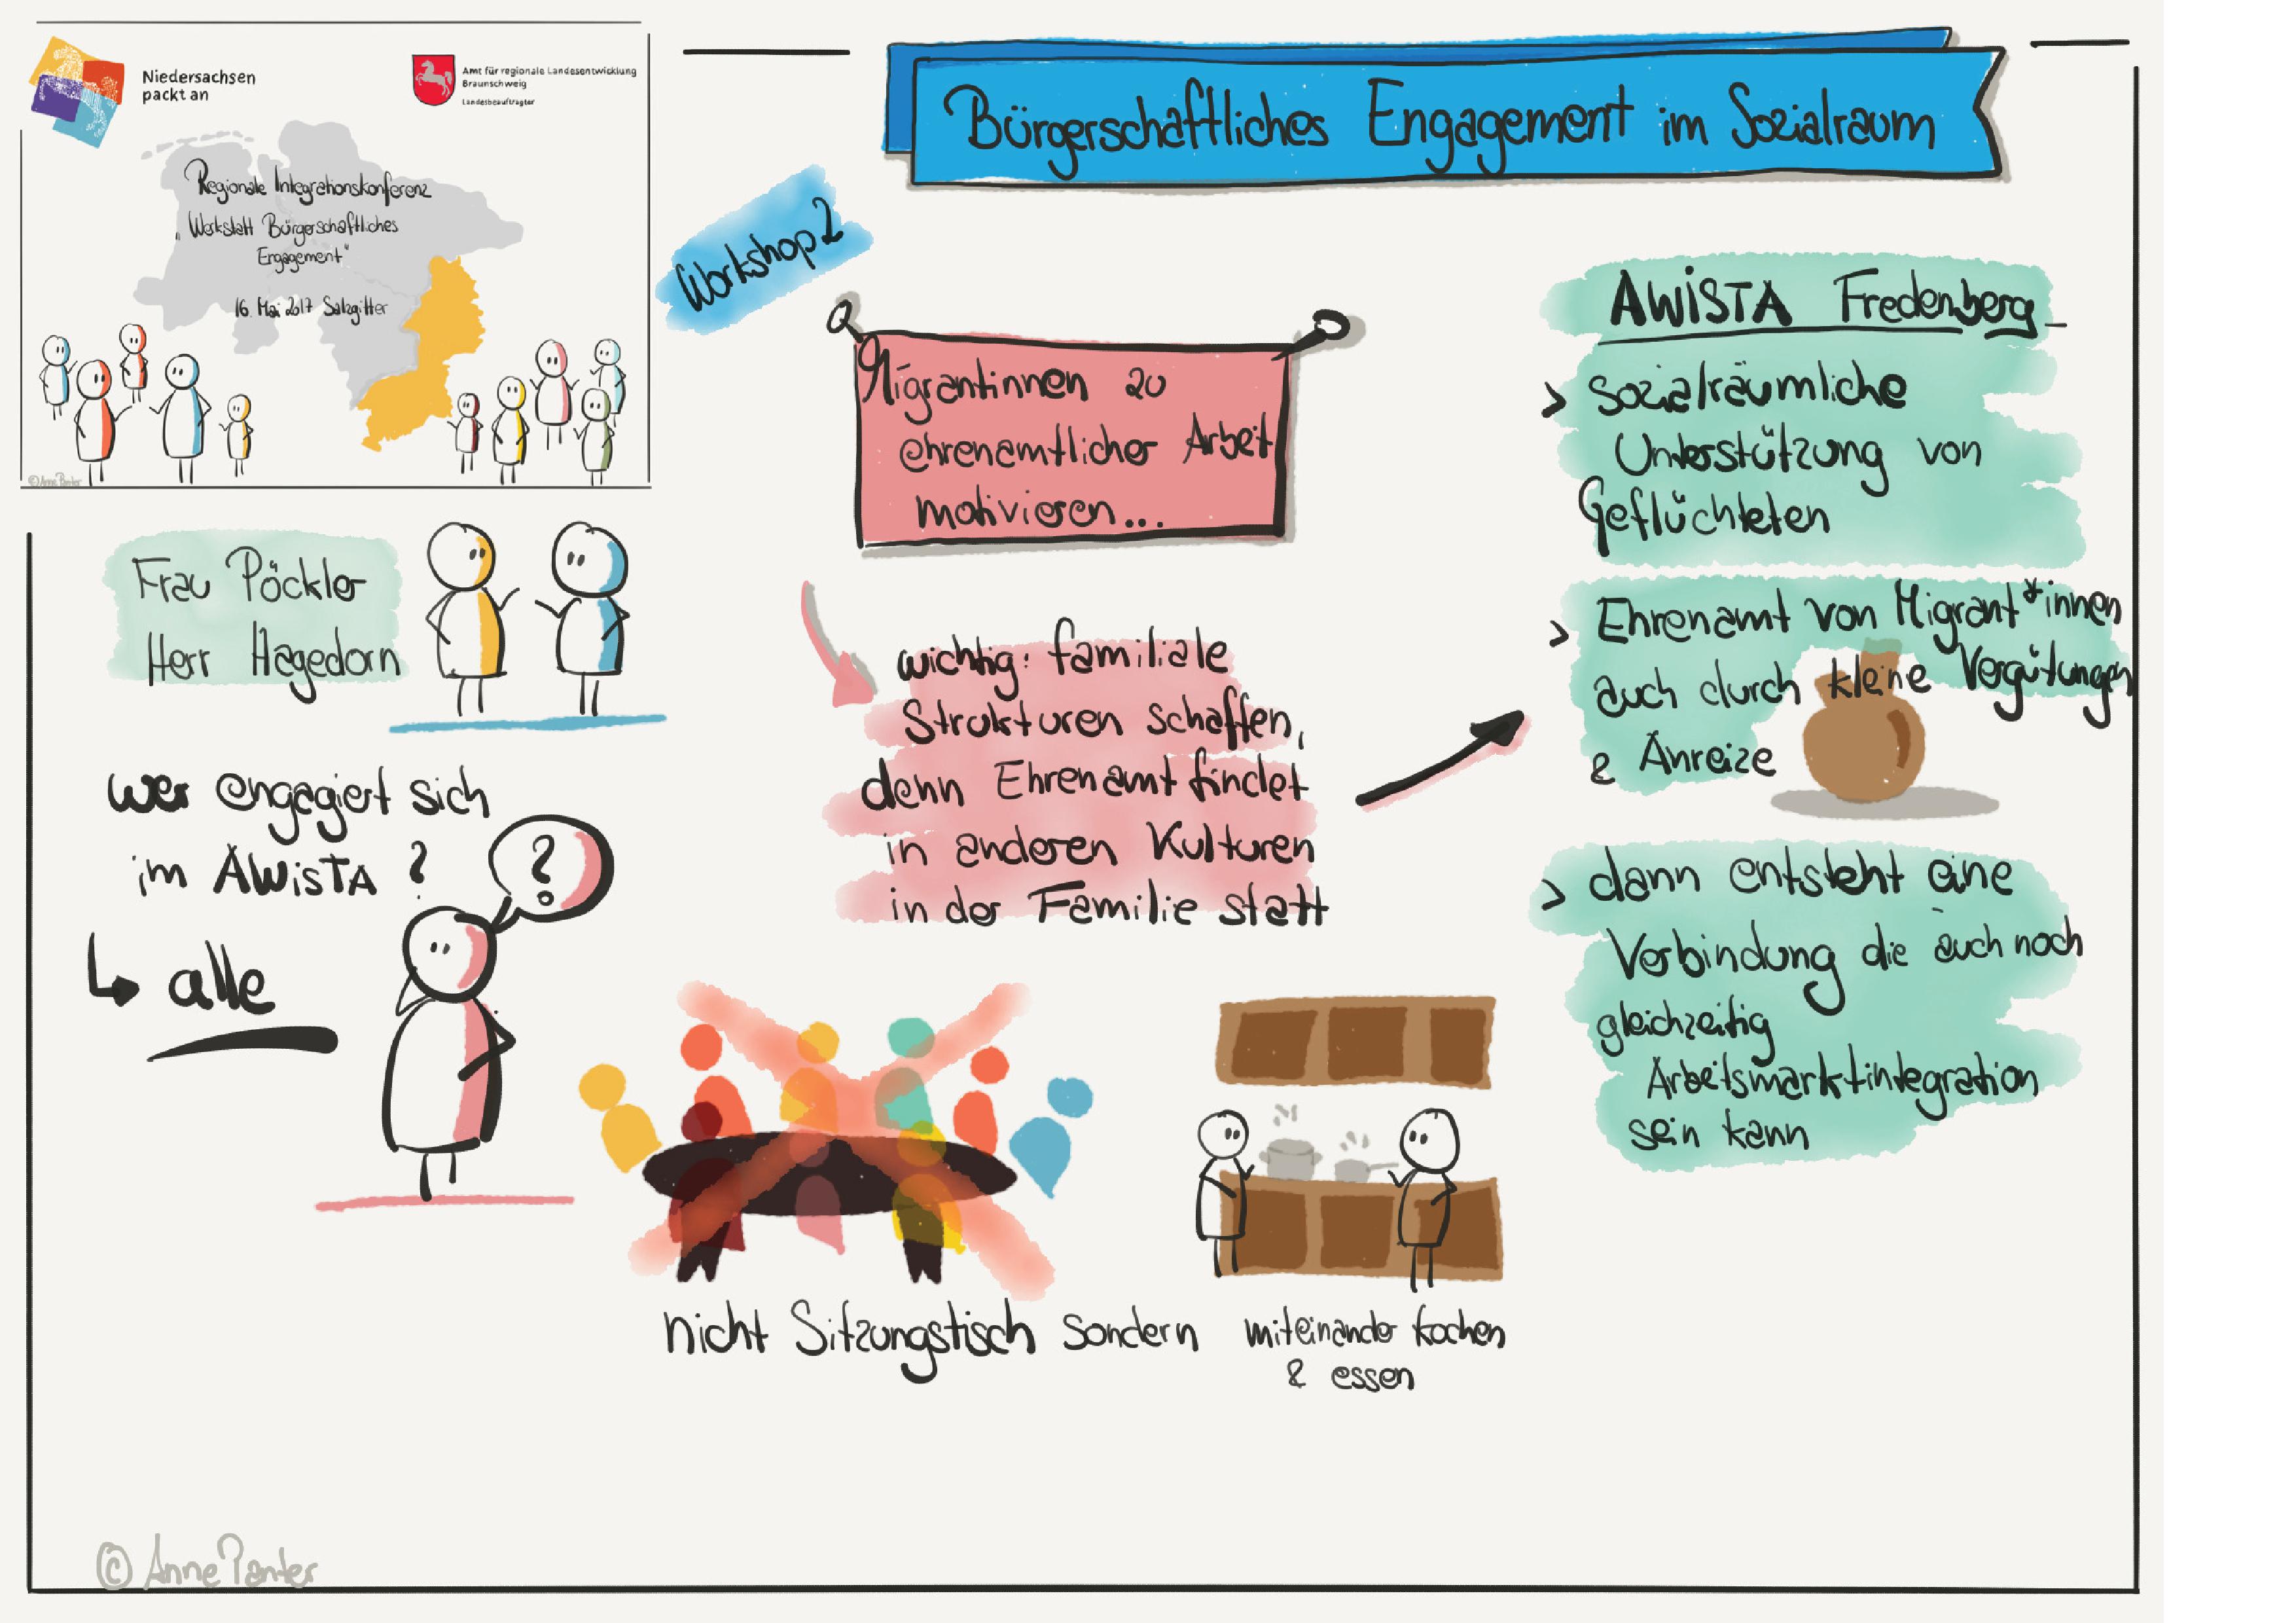 Niedersachsen
packt an
Amt für regionale Landesentwicklung
Braunschweig
Landesbeauftragter
Regionale Integrationskonferenz
„Werkstatt Bürgerschaftliches
Engagement“
16. Mai 2017 Salzgitter
©Anne Panter
Bürgerschaftliches Engagement im Sozialraum
Workshop 2
Frau Pöckler
Herr Hagedorn
wer engagiert sich
im AWiSTA ?
alle
?
Migrantinnen zu
ehrenamtlicher Arbeit
motivieren...
wichtig: familiale
Strukturen schaffen,
denn Ehrenamt findet
in anderen Kulturen
in der Familie statt
nicht Sitzungstisch sondern miteinander kochen
& essen
AWiSTA Fredenberg
> Sozialräumliche
Unterstützung von
Geflüchteten
> Ehrenamt von Migrant*innen
auch durch kleine Vergütungen
& Anreize
> dann entsteht eine
Verbindung die auch noch
gleichzeitig
Arbeitsmarktintegration
sein kann
© Anne Panter